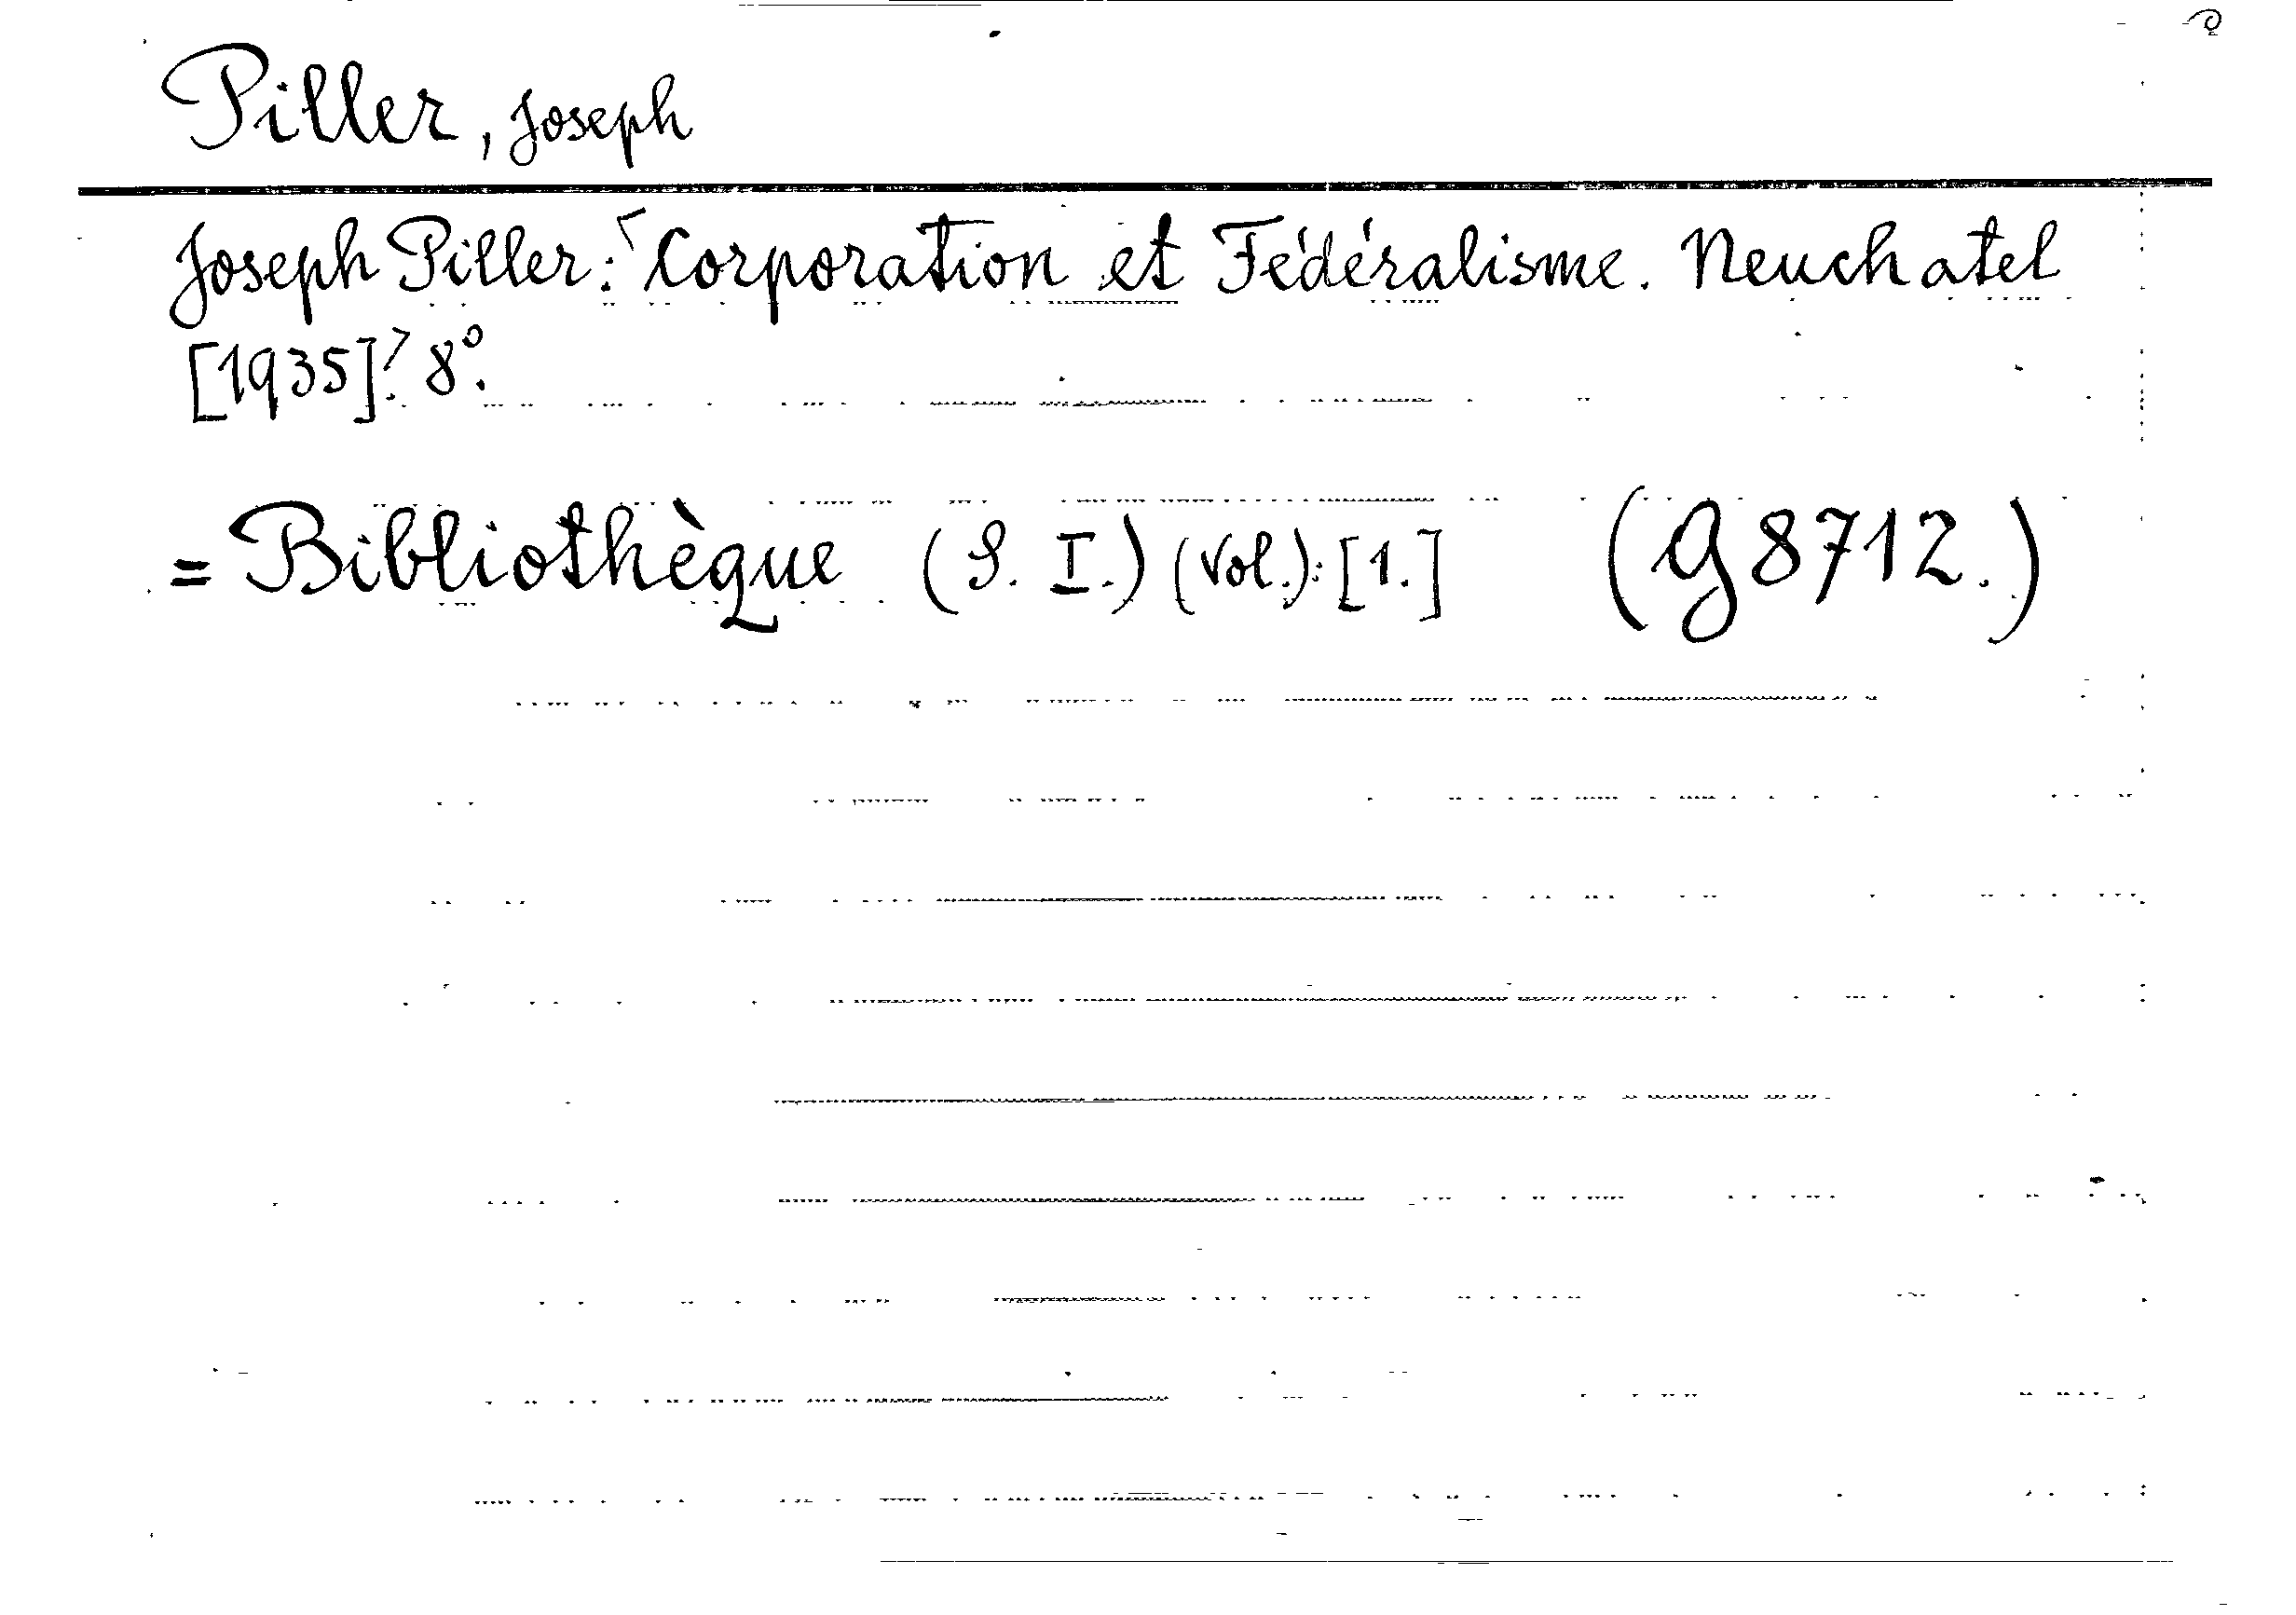 Piller, Joseph
Joseph Piller: ⌈Corporation et Fédéralisme. Neuchatel
[1935].⌉ 8°.
= Bibliothèque (S. I.) (Vol.): [1.] (G 8712.)